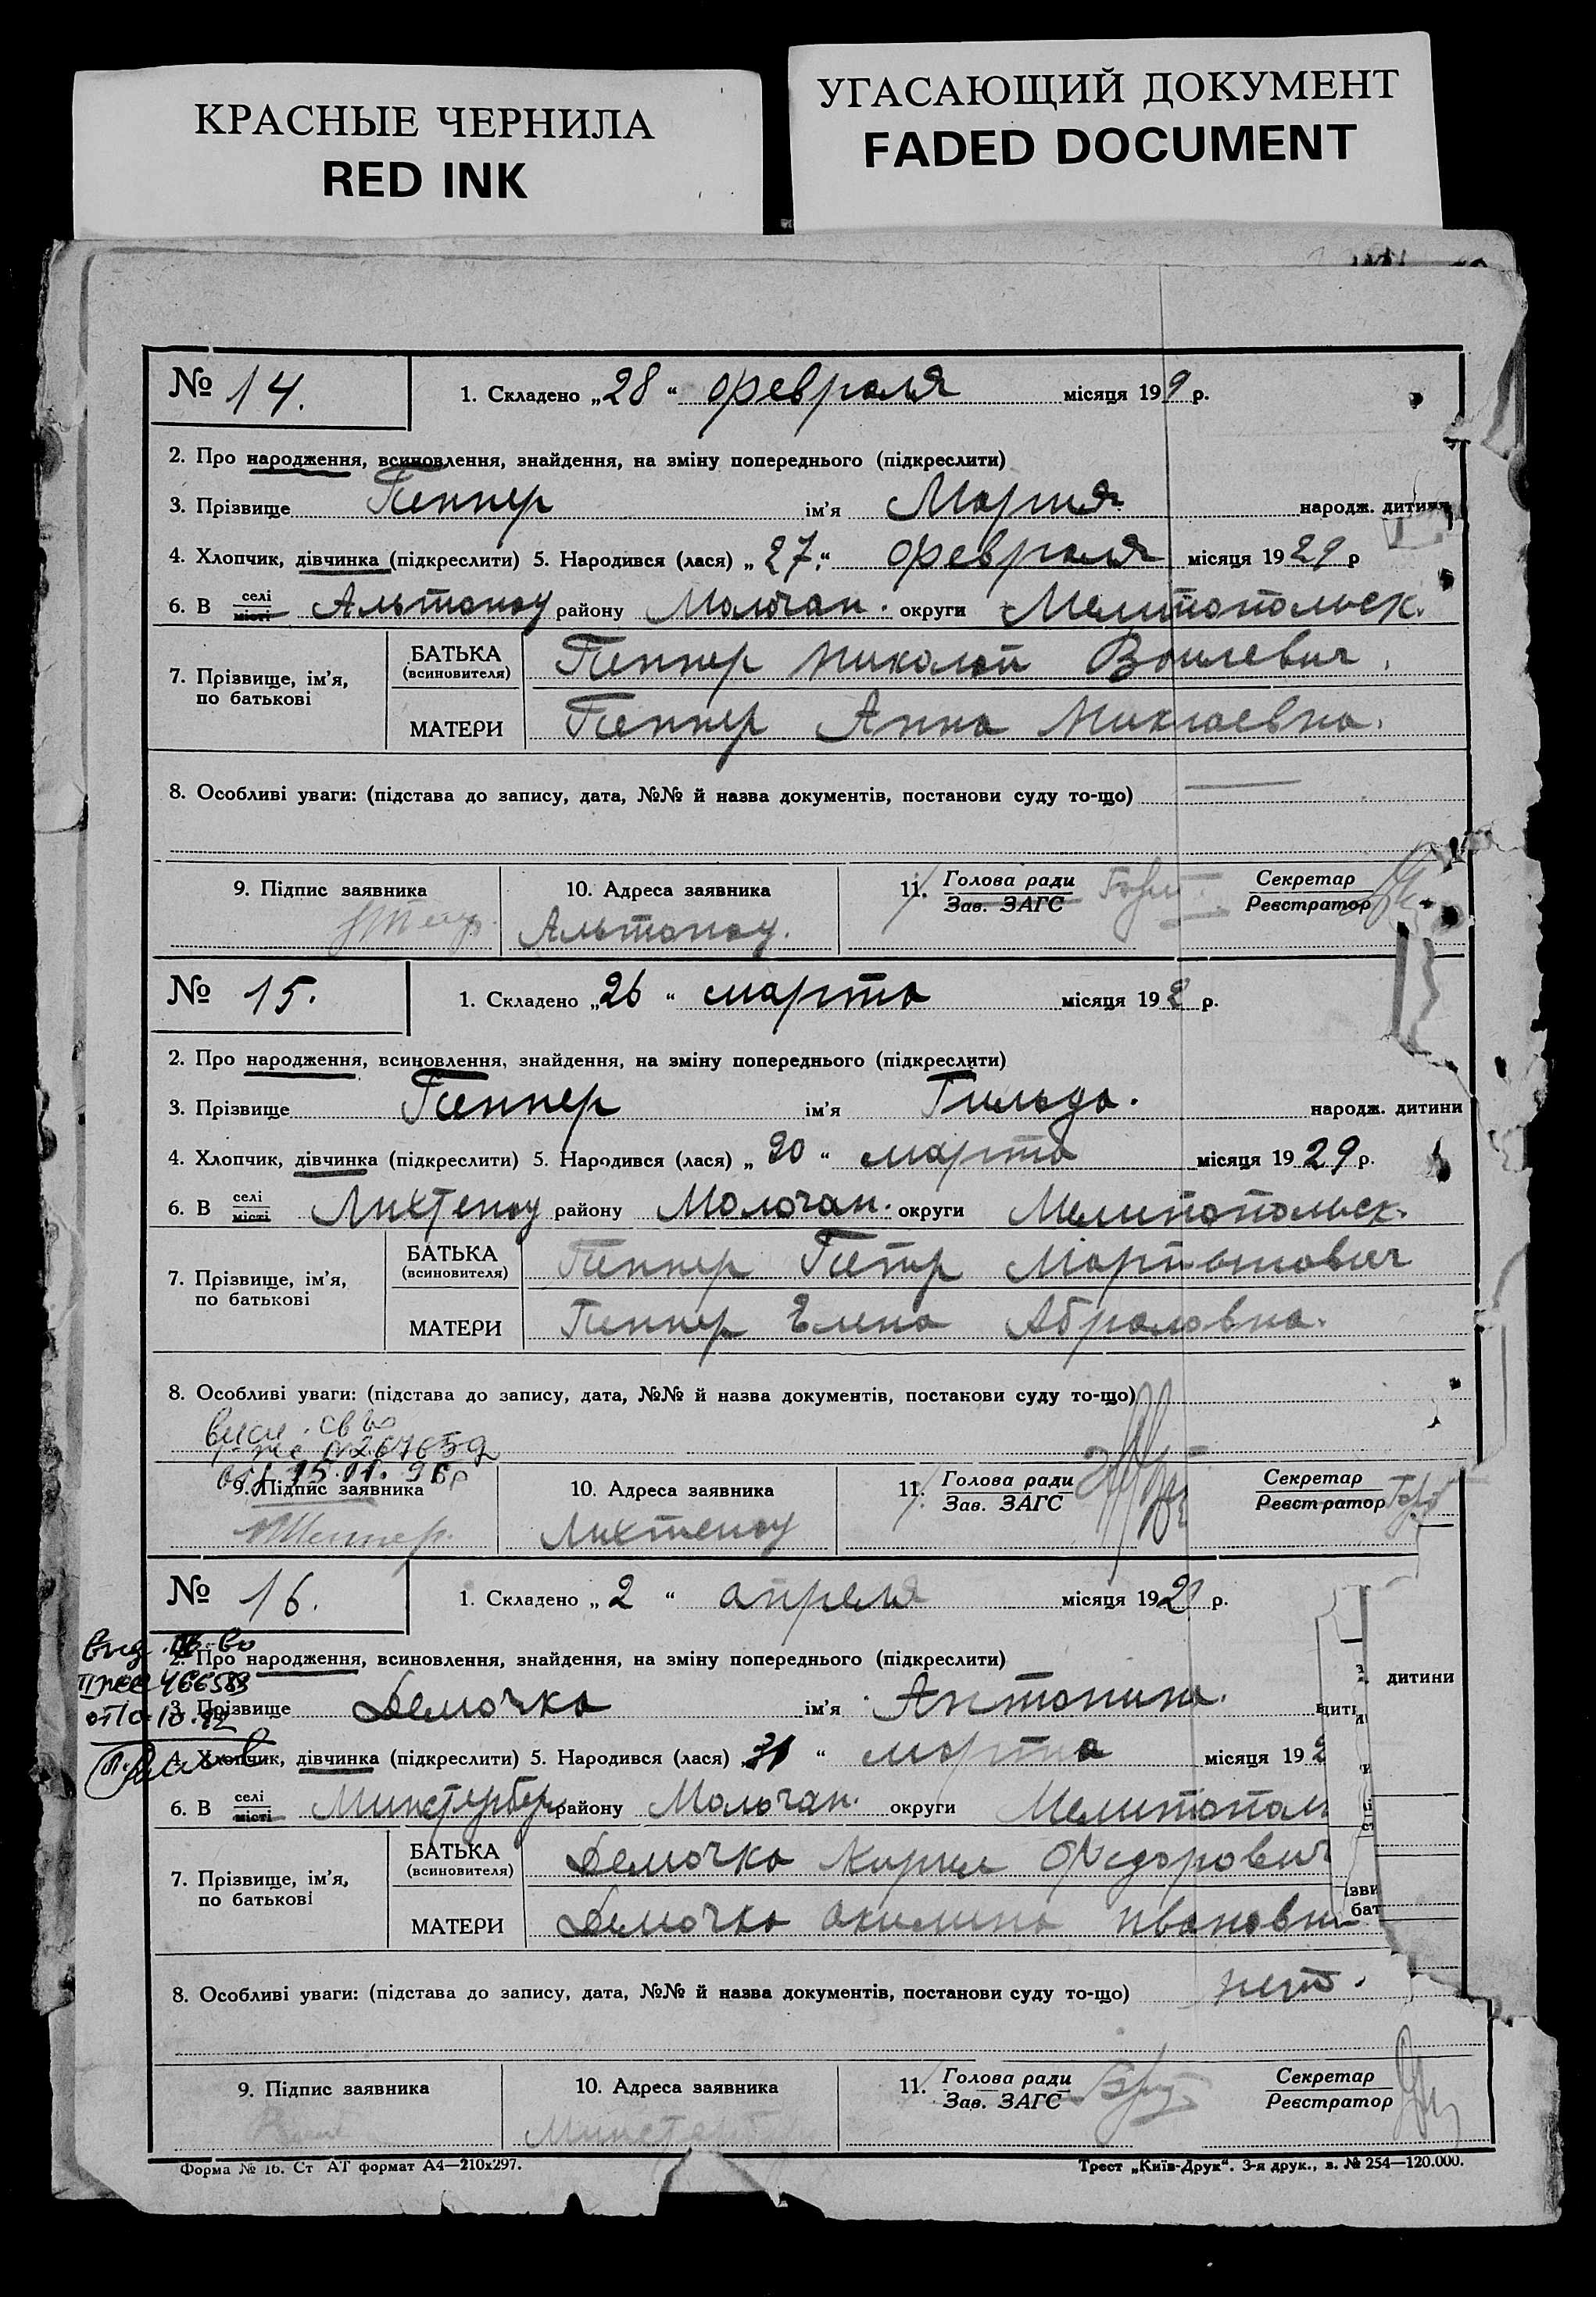 КРАСНЫЕ ЧЕРНИЛА
RED INK
УГАСАЮЩИЙ ДОКУМЕНТ
FADED DOCUMENT
№ 14. 1. Складено „28“ февраля місяця 199 р.
2. Про народження, всиновлення, знайдення, на зміну попереднього (підкреслити)
3. Прізвище Пеннер ім'я Мария народж. дитини
4. Хлопчик, дівчинка (підкреслити) 5. Народився (лася) „27.“ февраля місяця 1929 р
6. В селі місті Альтонау району Молочан. округи Мелитопольск.
7. Прізвище, ім'я, по батькові
БАТЬКА (всиновителя) Пеннер Николай
МАТЕРИ Пеннер Анна
8. Особливі уваги: (підстава до запису, дата, №№ й назва документів, постанови суду то-що)
9. Підпис заявника 10. Адреса заявника 11. Голова ради Зав. ЗАГС Секретар Реєстратор
Альтонау.
№ 15. 1. Складено „26“ марта місяця 192 р.
2. Про народження, всиновлення, знайдення, на зміну попереднього (підкреслити)
3. Прізвище Пеннер ім'я Гильда. народж. дитини
4. Хлопчик, дівчинка (підкреслити) 5. Народився (лася) „20“ марта місяця 1929 р.
6. В селі місті Лихтенау району Молочан. округи Мелитопольск.
7. Прізвище, ім'я, по батькові
БАТЬКА (всиновителя) Пеннер Петр
МАТЕРИ Пеннер Елена Абрамовна.
8. Особливі уваги: (підстава до запису, дата, №№ й назва документів, постанови суду то-що)
9. Підпис заявника 10. Адреса заявника 11. Голова ради Зав. ЗАГС Секретар Реєстратор
Лихтенау
№ 16. 1. Складено „2“ апреля місяця 192 р.
2. Про народження, всиновлення, знайдення, на зміну попереднього (підкреслити)
3. Прізвище Демочка ім'я Антонина.
дитини
4. Хлопчик, дівчинка (підкреслити) 5. Народився (лася) „31“ марта місяця 192
6. В селі місті Минстерберг району Молочан. округи Мелитопол
7. Прізвище, ім'я, по батькові
БАТЬКА (всиновителя) Демочка Кирил Федорович
МАТЕРИ Демочка Акилина Ивановн
8. Особливі уваги: (підстава до запису, дата, №№ й назва документів, постанови суду то-що) нет.
9. Підпис заявника 10. Адреса заявника 11. Голова ради Зав. ЗАГС Секретар Реєстратор
Форма № 16. Ст АТ формат А4—210х297. Трест „Київ-Друк“. 3-я друк., з. № 254—120.000.